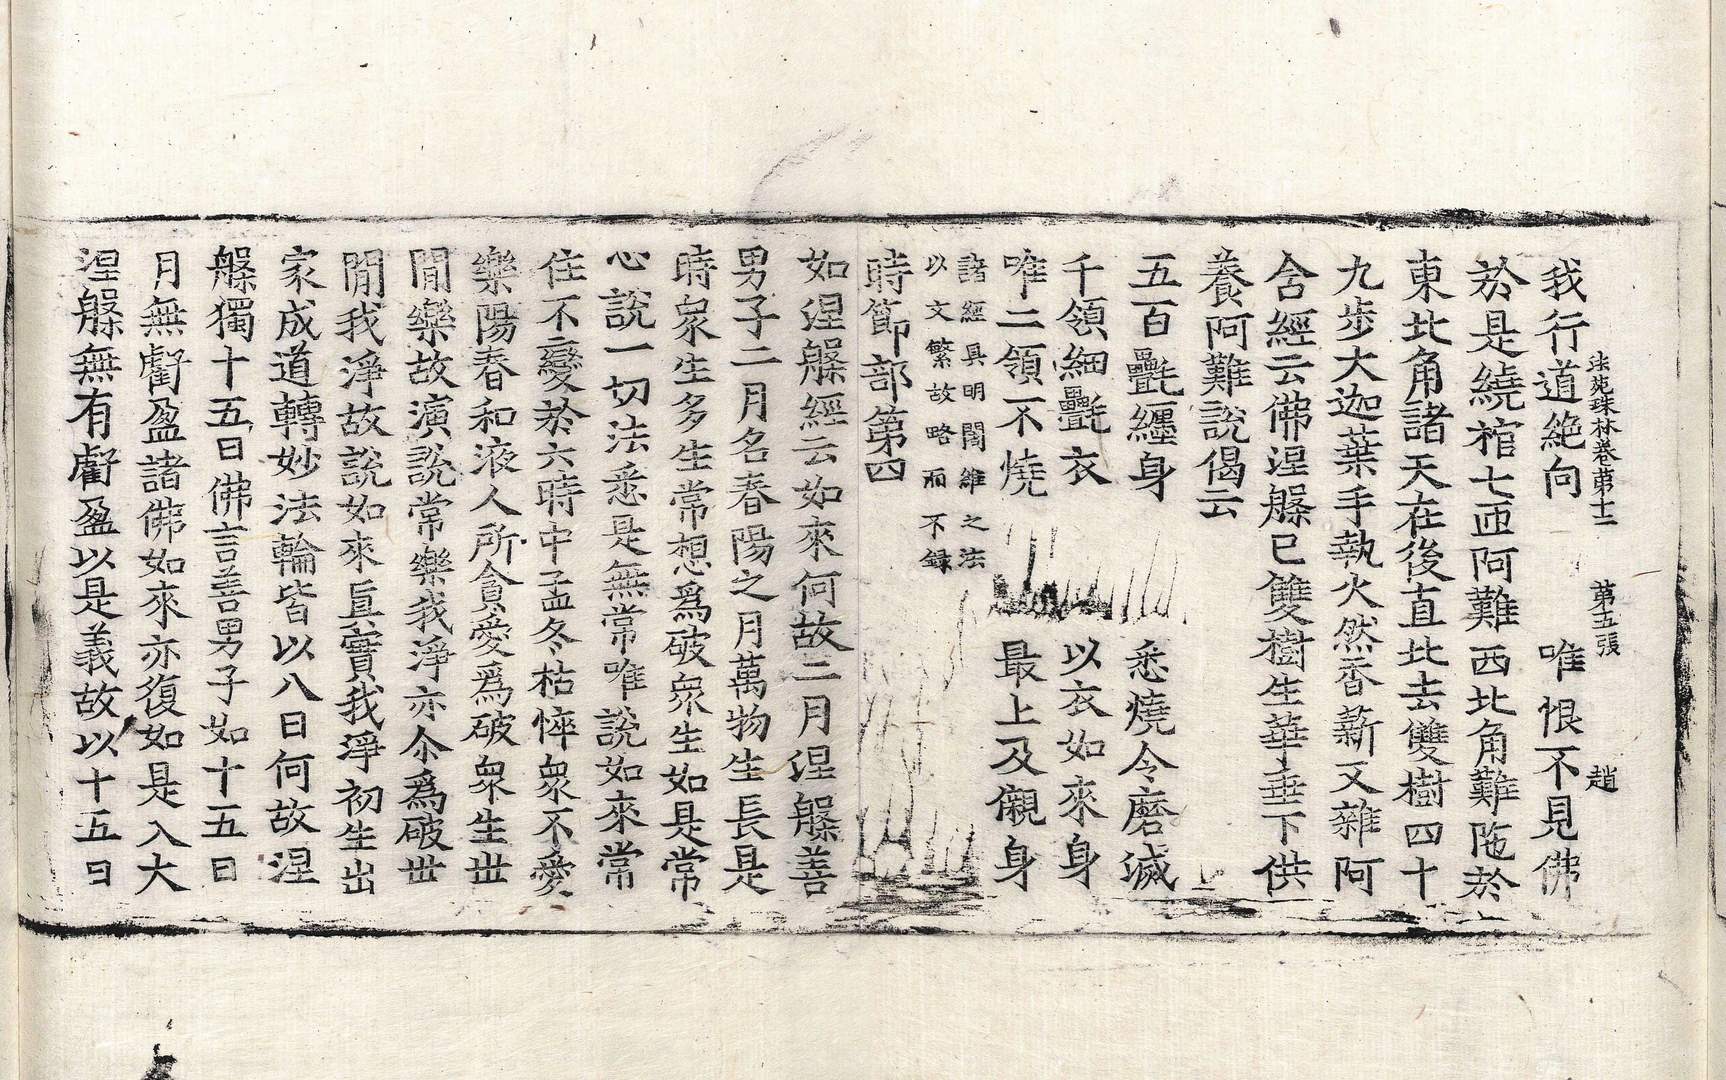 法苑珠林卷第十二　第五張　趙
我行道絶向　唯恨不見佛
於是繞棺七匝阿難西北角難陁於
東北角諸天在後直北去雙樹四十
九步大迦葉手執火然香薪又雜阿
含經云佛涅槃已雙樹生華垂下供
養阿難說偈云
五百㲲纏身　悉燒令磨滅
千領細㲲衣　以衣如來身
唯二領不燒　最上及儭身
諸經具明闍維之法
以文繁故略而不錄
時節部第四
如涅槃經云如來何故二月涅槃善
男子二月名春陽之月萬物生長是
時衆生多生常想爲破衆生如是常
心說一切法悉是無常唯說如來常
住不變於六時中孟冬枯悴衆不愛
樂陽春和液人所貪愛爲破衆生世
閒樂故演說常樂我淨亦尒爲破世
閒我淨故說如來眞實我淨初生出
家成道轉妙法輪皆以八日何故涅
槃獨十五日佛言善男子如十五日
月無虧盈諸佛如來亦復如是入大
涅槃無有虧盈以是義故以十五日